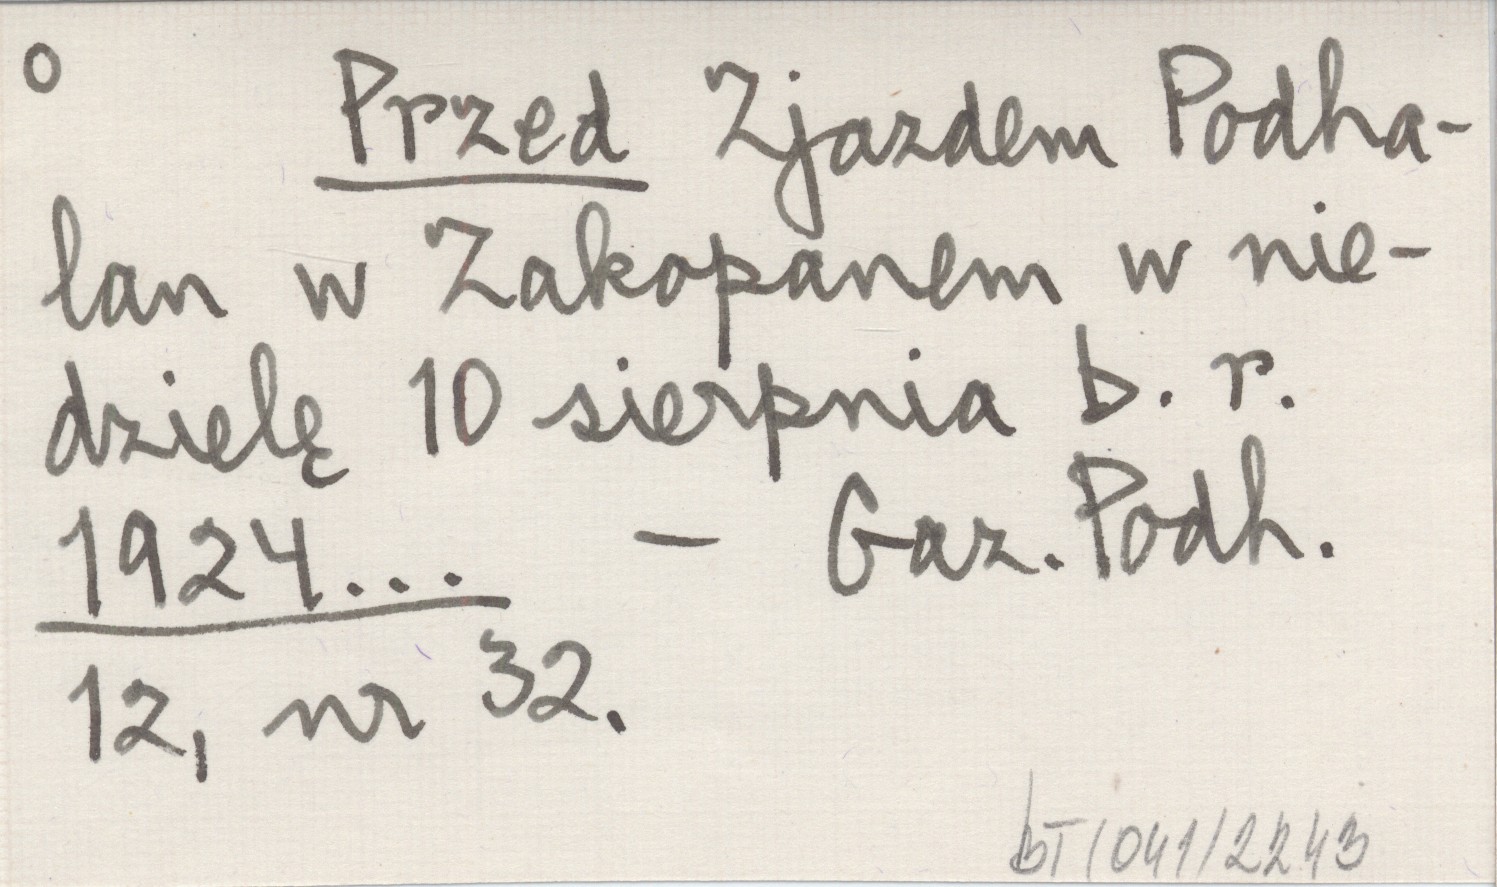 o Przed Zjazdem Podha-
lan w Zakopanem w nie-
dzielę 10 sierpnia b. r.
1924... – Gaz. Podh.
12, nr 32.
bT/041/2243